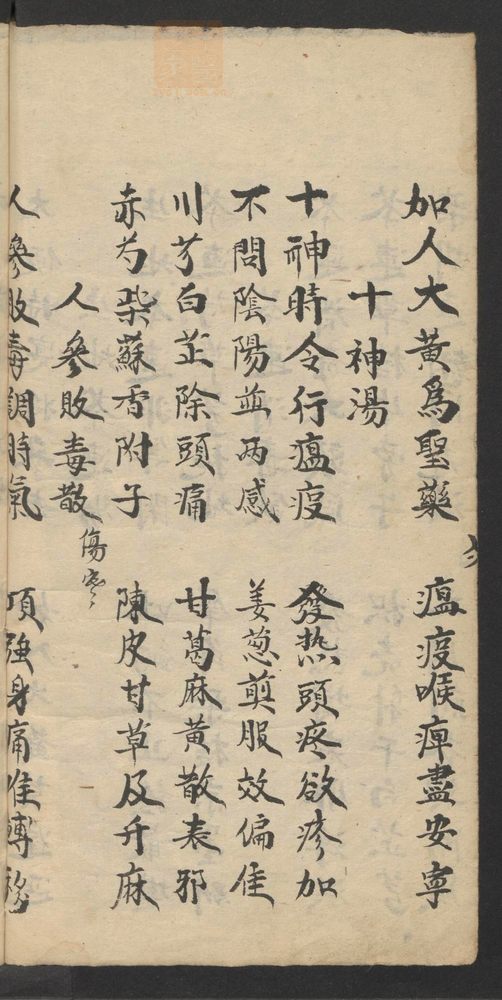 加人大黃爲聖藥 瘟疫喉痺盡安寧
十神湯
十神時令行瘟疫 發热頭疼欲疹加
不問陰陽並两感 姜葱煎服效偏佳
川芎白芷除頭痛 甘葛麻黄散表邪
赤芍柴蘇香附子 陳皮甘草及升麻
人參敗毒散 傷寒
人參敗毒調時氣 項強身痛佳